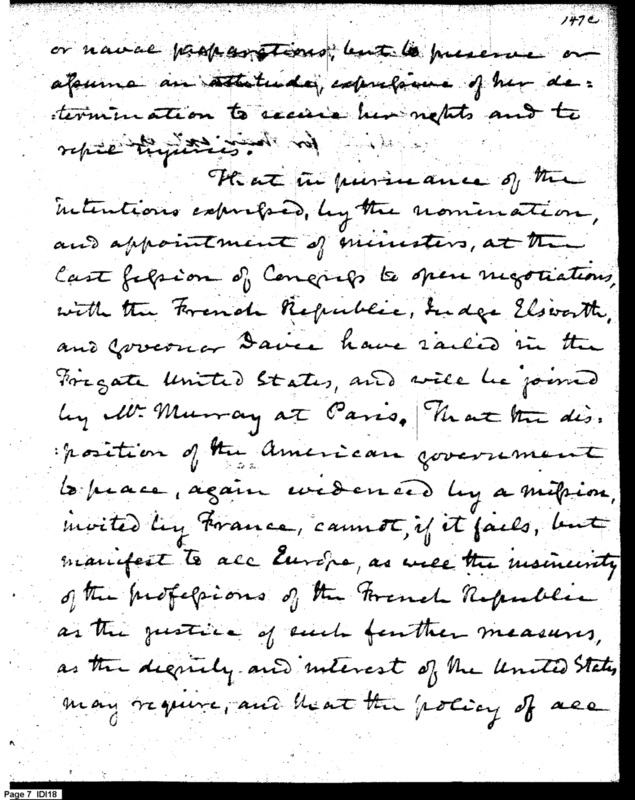 147c
or naval preparations; but to preserve or
assume an attitude, expressive of her de=
:termination to secure her rights and to
repel injuries.
That in pursuance of the
intentions expressed, by the nomination,
and appointment of ministers, at the
last session of Congress to open negotiations,
with the French Republic, Judge Elsworth,
and governor Davie have sailed in the
Frigate United States, and will be joined
by Mr. Murray at Paris. That the dis:
:position of the American government
to peace, again evidenced by a mission,
invited by France, cannot, if it fails, but
manifest to all Europe, as well the insincerity
of the professions of the French Republic
as the justice of such further measures,
as the dignity and interest of the United States
may require, and that the policy of all
Page 7 IDI18